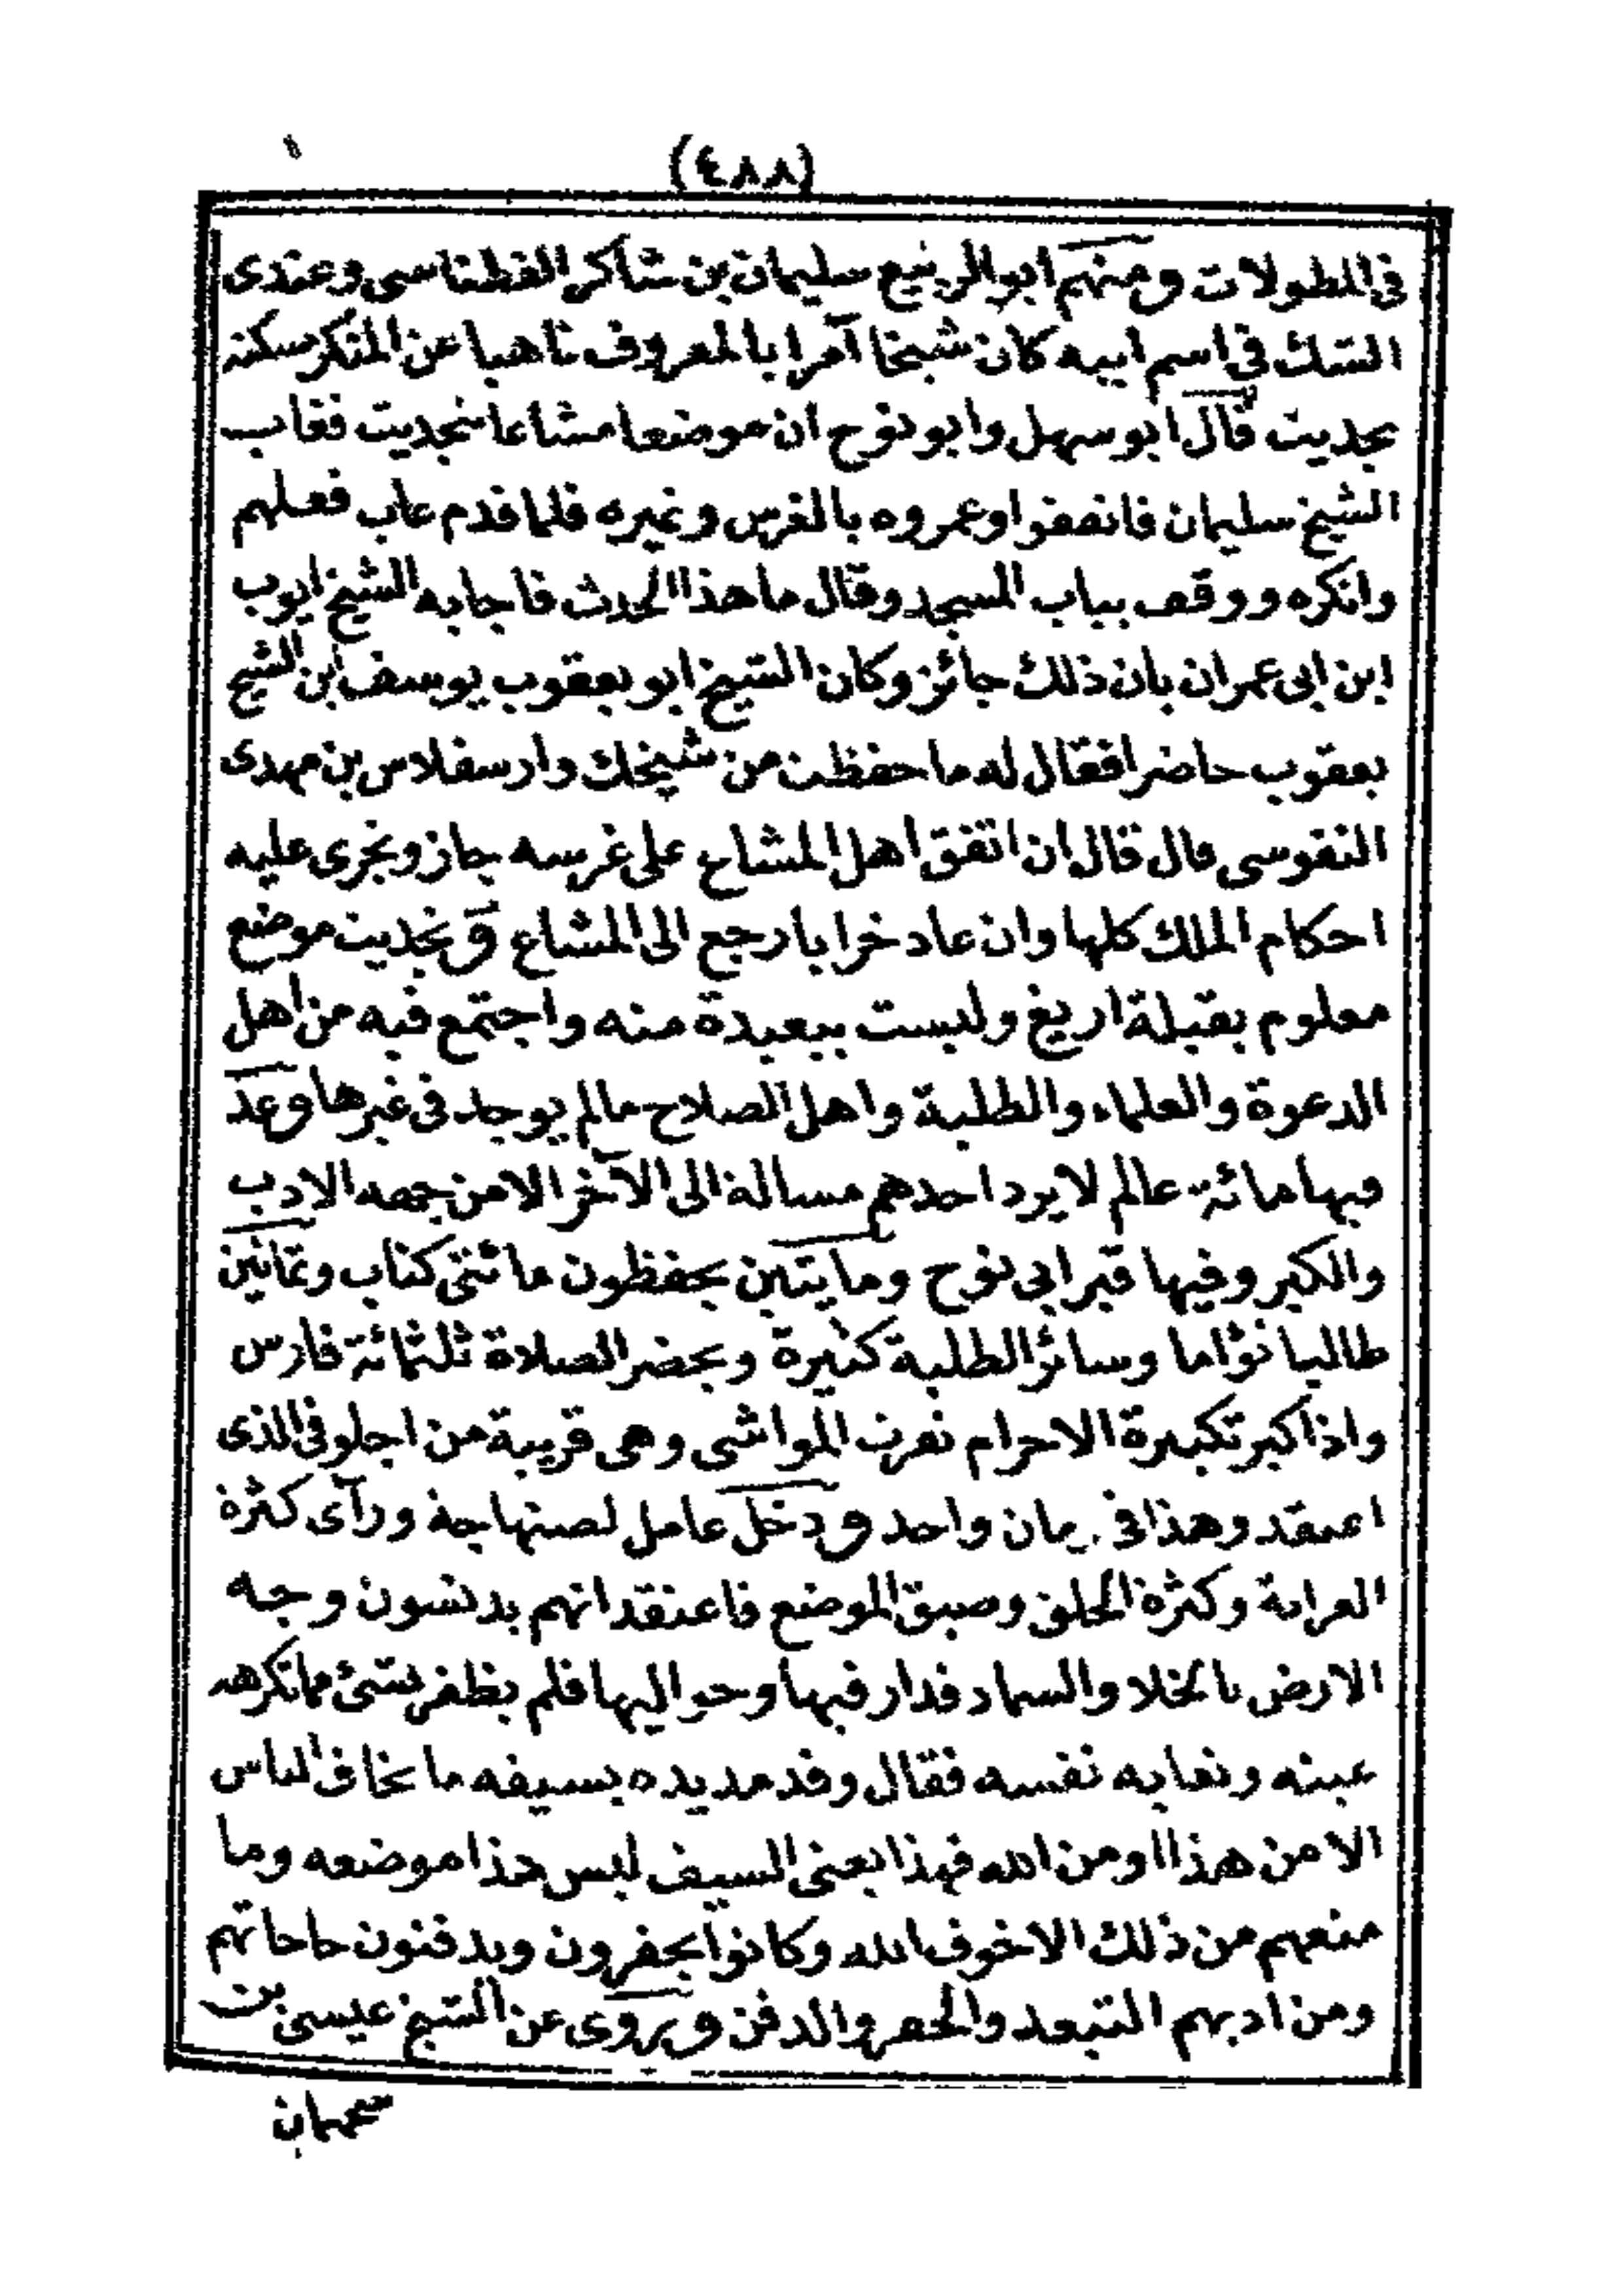 (٤٨٨)
فى المطولات ومنهم ابو الربيع سليمان بن شاكر الفطناسى وعندى
الشك فى اسم ابيه كان شيخا آمرا بالمعروف ناهيا عن المنكر سكنه
بجديت قال ابو سهل وابو نوح ان موضعا مشاعا بتجديت فغاب
الشيخ سليمان فاتفقوا وعمروه بالغرس وغيره فلما قدم عاب فعلهم
وانكره ووقف بباب المسجد وقال ما هذا الحدث فاجابه الشيخ ايوب
ابن ابى عمران بان ذلك جائز وكان الشيخ ابو يعقوب يوسف ابن الشيخ
يعقوب حاضرا فقال له ما حفظت من شيخك وارسفلاس بن مهدى
النفوسى قال قال ان اتفق اهل المشاع على غرسه جاز ويجرى عليه
احكام الملك كلها وان عاد خرابا رجع الى المشاع وتجديت موضع
معلوم بقبلة اريغ وليست ببعيدة منه واجتمع فيه من اهل
الدعوة والعلماء والطلبة واهل الصلاح مالم يوجد فى غيرها وعد
فيها مائة عالم لا يرد احدهم مسالة الى الآخر الا من جهه الادب
والكبر وفيها قبر ابى نوح ومايتين يحفظون مائتى كتاب وثمانين
طالبا نؤاما وسائر الطلبة كثيرة ويحضر الصلاة ثلثمائة فارس
واذا كبر تكبيرة الاحرام نفرت المواشى وهى قريبة من اجلو فى الذى
اعتقد وهذا فى زمان واحد ودخل عامل لصنهاجة ورآى كثرة
العرابة وكثرة الخلق وضيق الموضع فاعتقد انهم يدنسون وجه
الارض بالخلا والسماد فدار فيها وحواليها فلم يظفر بشئ مما تكرهه
عينه وتعابه نفسه فقال وقد مد يده بسيفه ما يخاف الناس
الا من هذا او من الله فهذا يعنى السيف ليس هذا موضعه وما
منعهم من ذلك الا خوف الله وكانوا يحفرون ويدفنون حاجاتهم
ومن ادبهم التبعد والحفر والدفن ويروى عن الشيخ عيسى بن